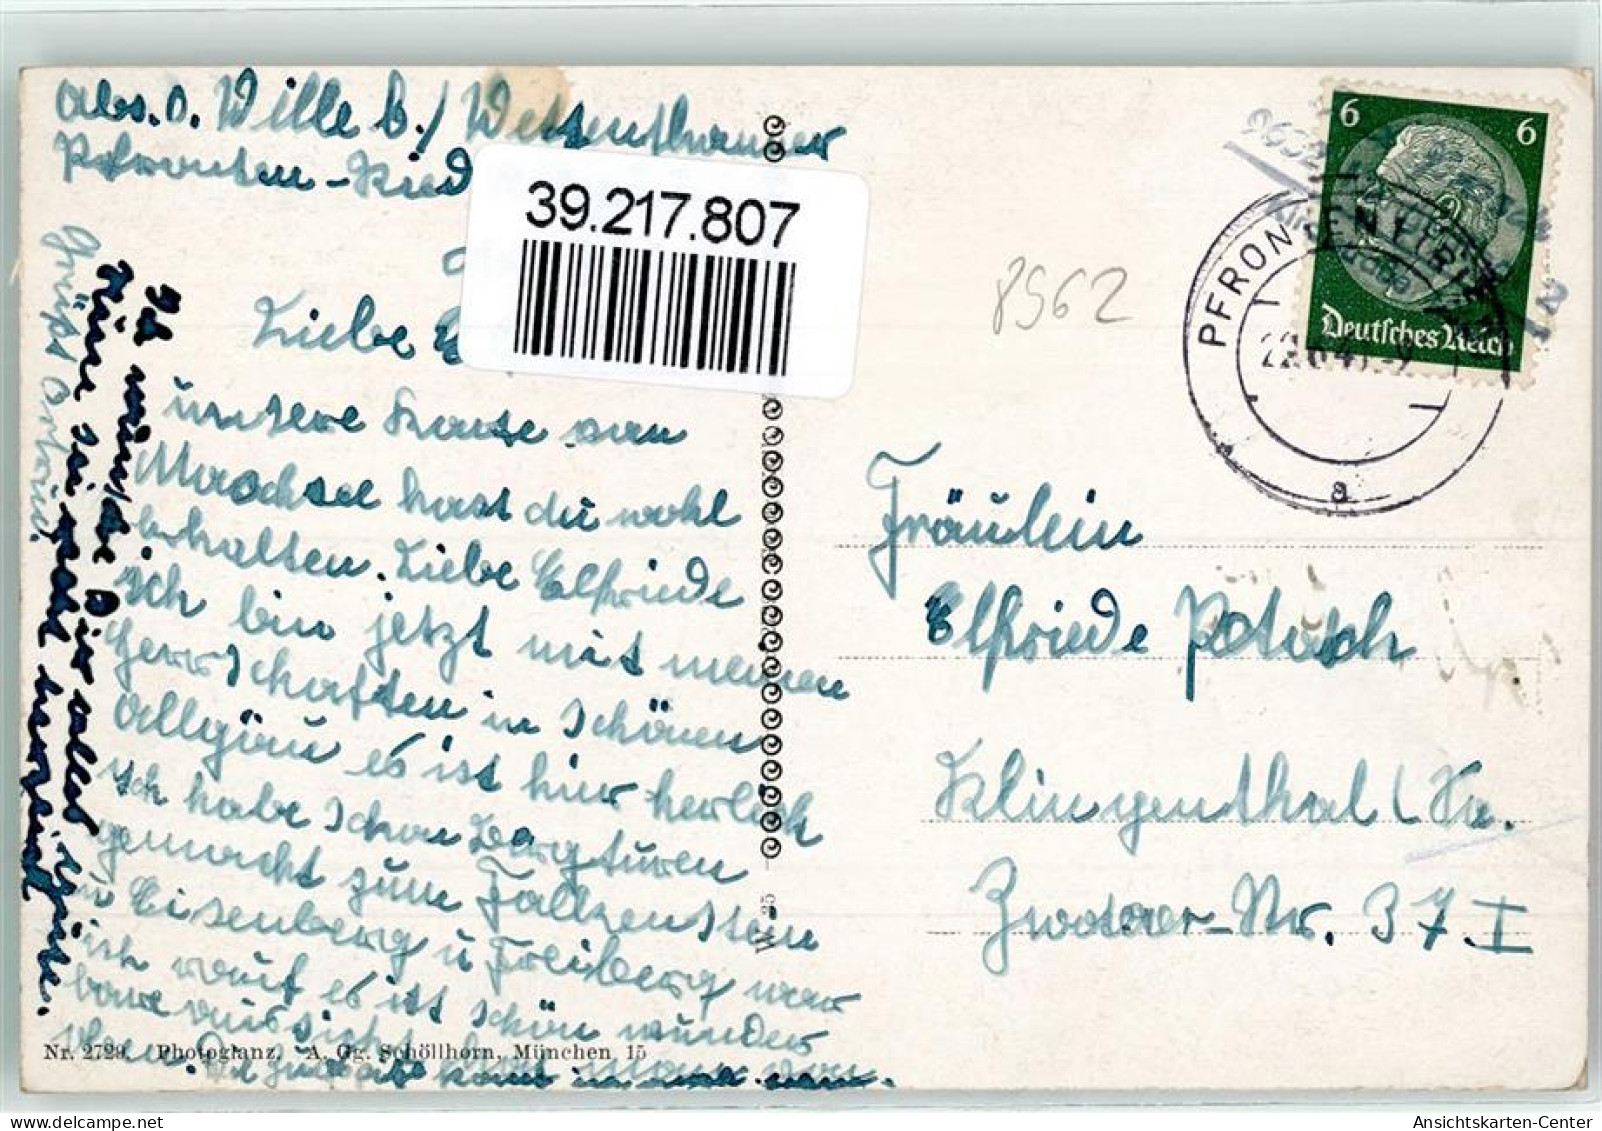 Abs. O. Wille b./
Pfronten-Ried
39.217.807
Liebe
unsere Karte von
hast du wohl
erhalten. Liebe Elfriede
Ich bin jetzt mit meinen
Herrschaften in schönen
Allgäu es ist hier herlich
ich habe schon Bergturen
gemacht zum Falkenstein
u Eisenberg u Freiberg war
ich rauf es ist schön wunder
bare aussicht
oben.
Ich wünsche Dir alles gute
Grüßt
Nr. 2729. Photoglanz. A. Gg. Schöllhorn, München 15
W. 25
8962
6 6
Deutsches Reich
PFRONTEN
a
Fräulein
Elfriede Potasch
Klingenthal / Sa.
Zwotaer-Str. 37. I
Ansichtskarten-Center